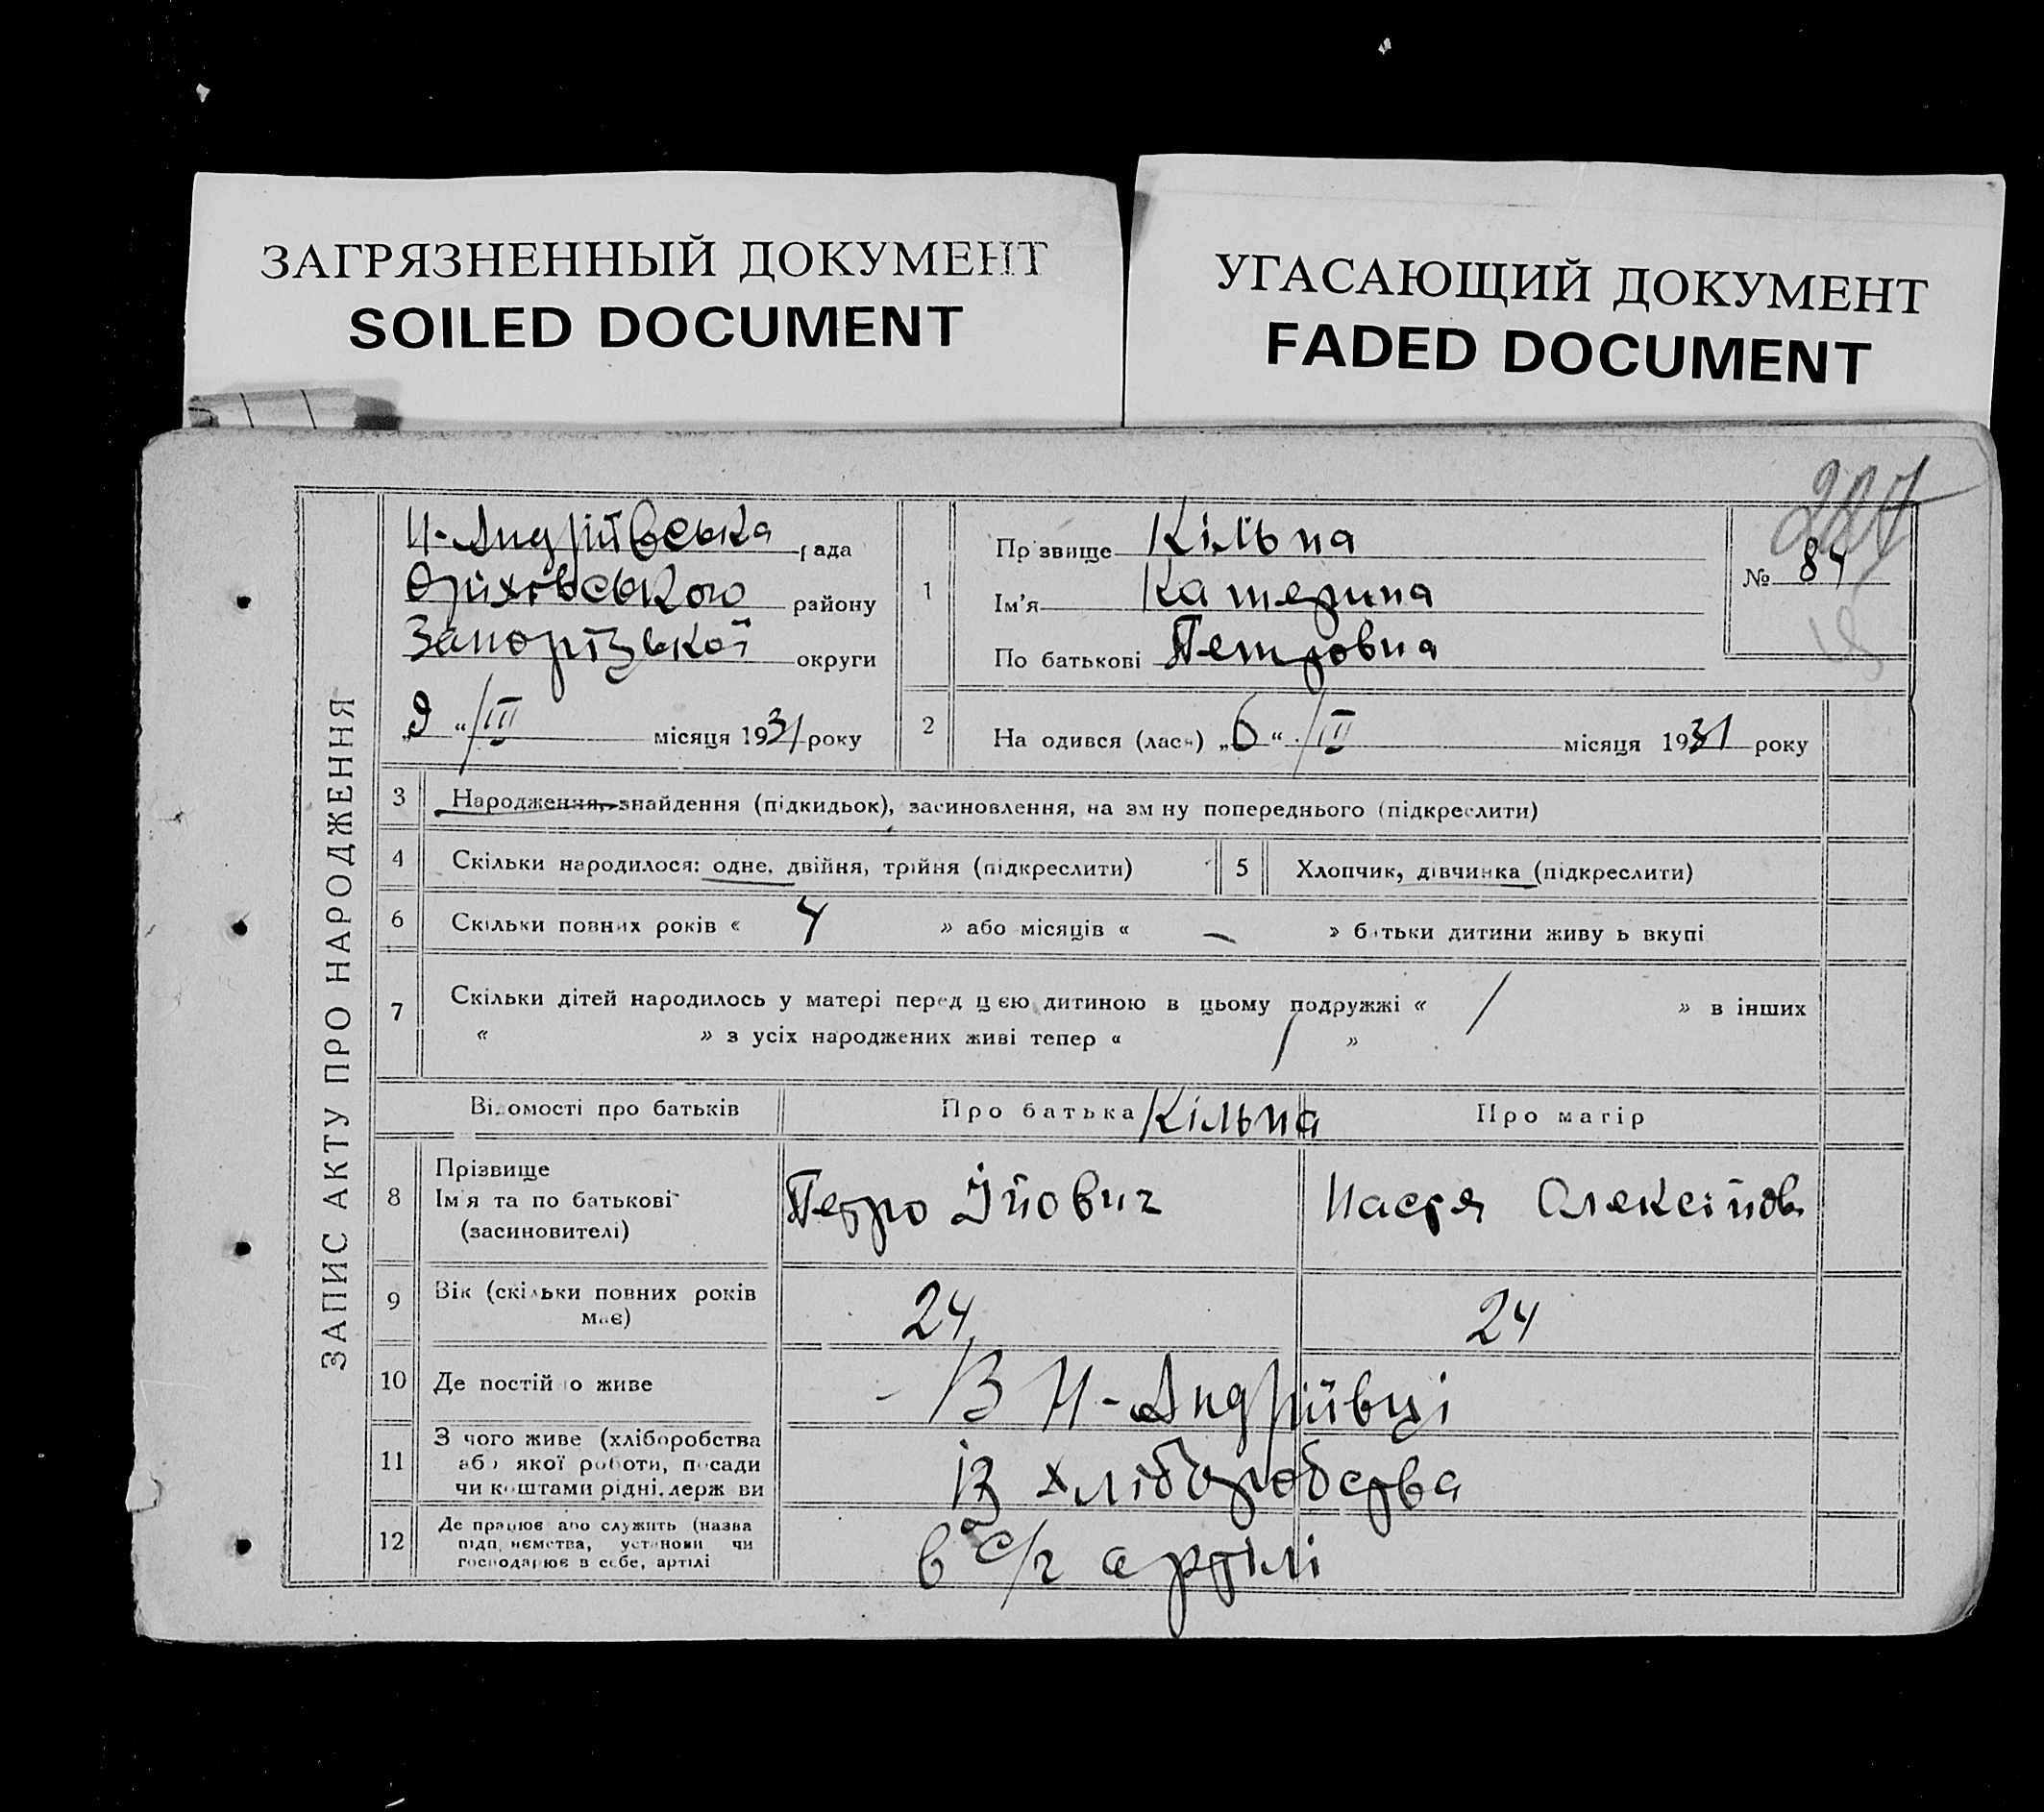 ЗАГРЯЗНЕННЫЙ ДОКУМЕНТ
SOILED DOCUMENT
УГАСАЮЩИЙ ДОКУМЕНТ
FADED DOCUMENT
ЗАПИС АКТУ ПРО НАРОДЖЕННЯ
Н-Андріївська рада
Оріхівського району
Запорізької округи
„9“ /III місяця 1931 року
1
Прізвище Кільпа
Ім'я Катерина
По батькові Петровна
№ 84
2 Народився (лася) „6“ /III місяця 1931 року
3 Народження, знайдення (підкидьок), засиновлення, на зміну попереднього (підкреслити)
4 Скільки народилося: одне, двійня, трійня (підкреслити)
5 Хлопчик, дівчинка (підкреслити)
6 Скільки повних років « 4 » або місяців « — » батьки дитини живуть вкупі
7 Скільки дітей народилось у матері перед цією дитиною в цьому подружжі « / » в інших
« » з усіх народжених живі тепер « / »
Відомості про батьків
Про батька Кільпа
Про матір
8 Прізвище
Ім'я та по батькові
(засиновителі)
Петро Йович
Настя Олексійов
9 Вік (скільки повних років
має)
24
24
10 Де постійно живе
В Н-Андріївці
11 З чого живе (хліборобства
або якої роботи, посади
чи коштами рідні, держави
Із хліборобства
12 Де працює або служить (назва
підприємства, установи чи
господарює в себе, артілі
в с/г артілі